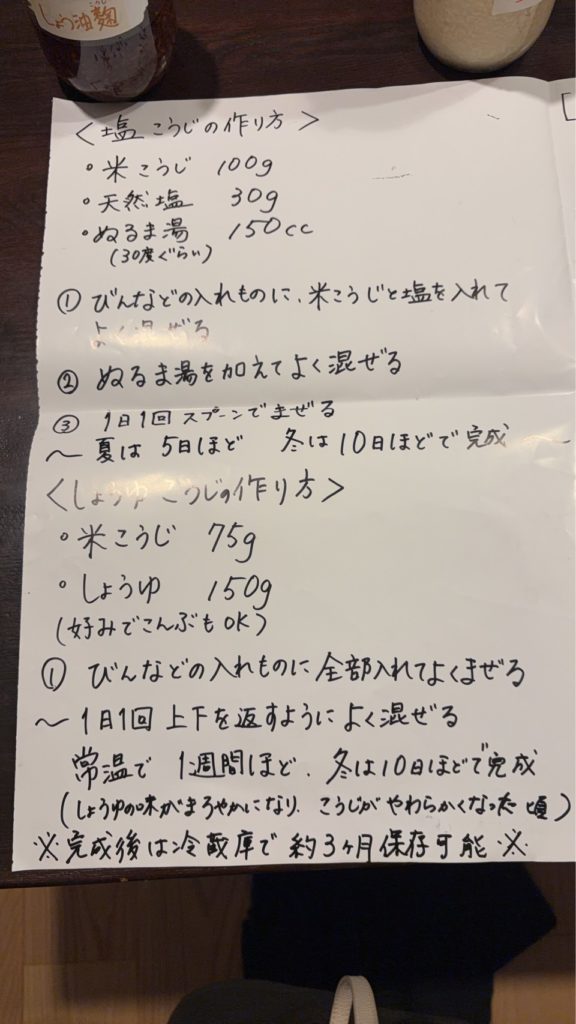 しょう油麹
<塩こうじの作り方>
・米こうじ 100g
・天然塩 30g
・ぬるま湯 150cc
(30度ぐらい)
① びんなどの入れものに、米こうじと塩を入れて
よく混ぜる
② ぬるま湯を加えてよく混ぜる
③ 1日1回スプーンでまぜる
～夏は5日ほど 冬は10日ほどで完成～
<しょうゆこうじの作り方>
・米こうじ 75g
・しょうゆ 150g
(好みでこんぶもOK)
① びんなどの入れものに全部入れてよくまぜる
～1日1回上下を返すようによく混ぜる
常温で1週間ほど、冬は10日ほどで完成
(しょうゆの味がまろやかになり、こうじがやわらかくなった頃)
※完成後は冷蔵庫で約3ヶ月保存可能※